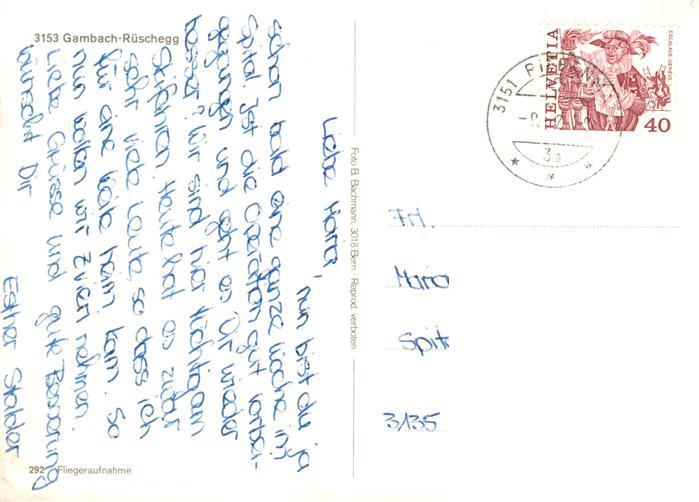 3153 Gambach-Rüschegg
Liebe Maria, nun bist du ja
schon bald eine ganze Woche im
Spital. Ist die Operation gut vorbei-
gegangen und geht es Dir wieder
besser? Wir sind hier tüchtig am
Skifahren. Heute hat es zwar
sehr viele Leute, so dass ich
für eine Weile heim kam. So
nun wollen wir Zvieri nehmen.
Liebe Grüsse und gute Besserung
wünscht Dir
Esther Stalder
292 Fliegeraufnahme
Foto B. Bachmann, 3018 Bern · Reprod. verboten
HELVETIA
ESCALADE GENÈVE
40
3151
3a
Frl.
Maria
Spit
3135